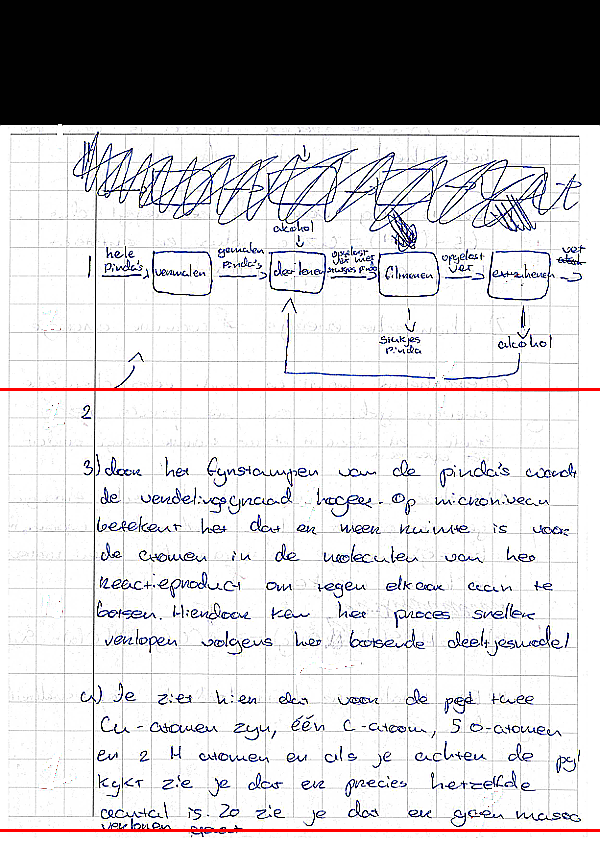 alcohol
1 hele pinda's vermalen gemalen pinda's opgelost vet met stukjes pinda filtreren opgelost vet vet
stukjes pinda
alcohol
2
3) door het fynstampen van de pinda's wordt
de verdelingsgraad hoger. Op microniveau
betekent het dat er meer ruimte is voor
de atomen in de moleculen van het
reactieproduct om tegen elkaar aan te
botsen. Hierdoor kan het proces sneller
verlopen volgens het botsende deeltjesmodel
4) Je ziet hier dat voor de pyl twee
Cu-atomen zyn, één C-atoom, 5 O-atomen
en 2 H atomen en als je achter de pyl
kykt zie je dat er precies hetzelfde
aantal is. Zo zie je dat er geen massa
verloren